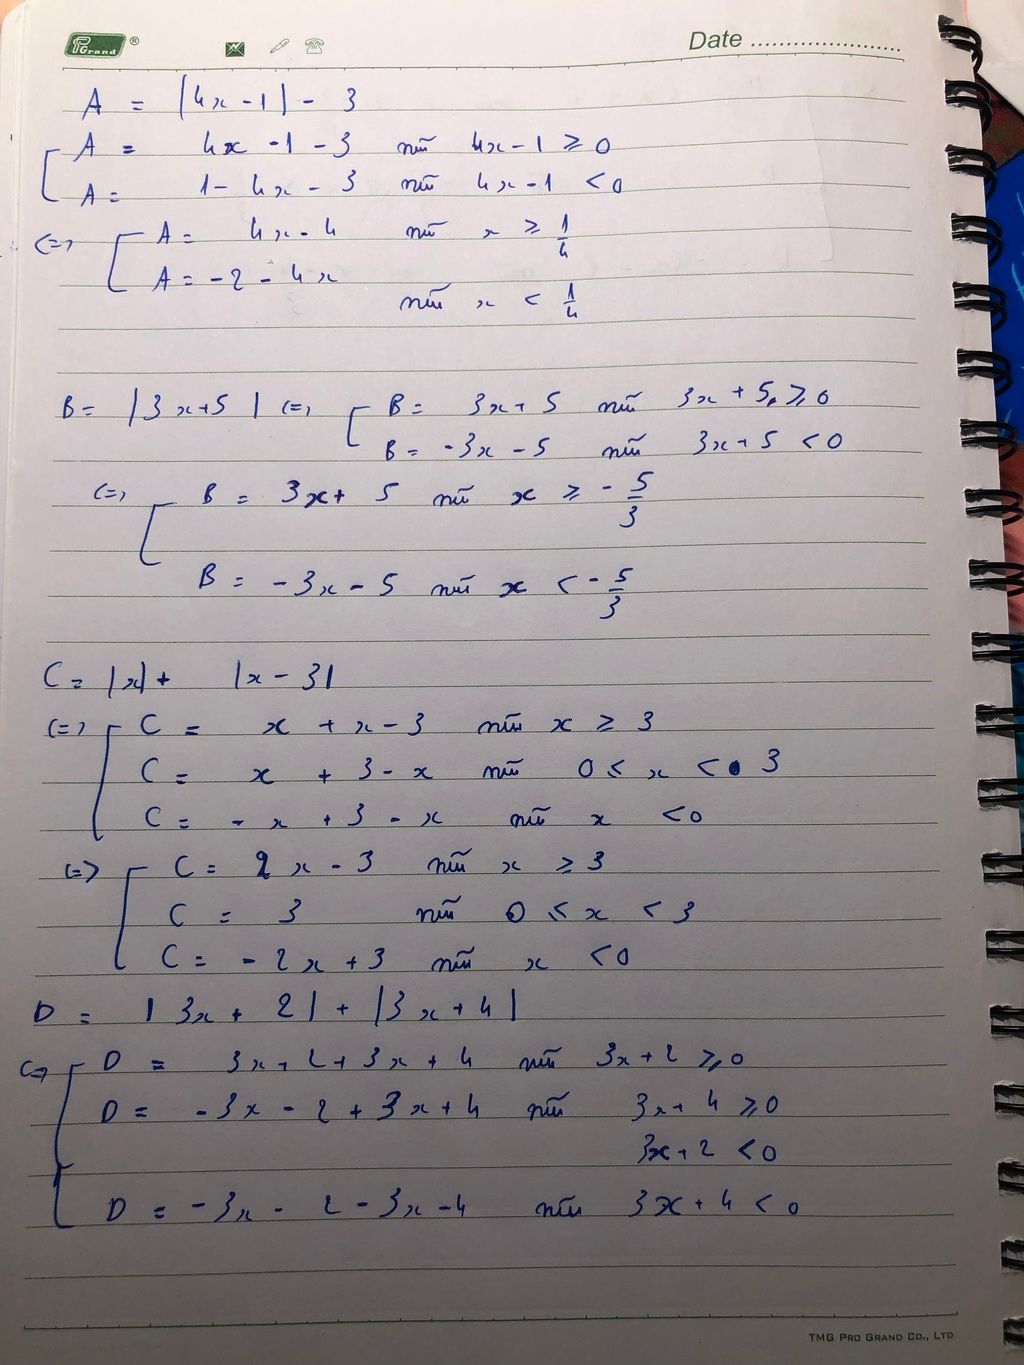 PGrand ®
Date ........................
A = |4x - 1| - 3
A = 4x - 1 - 3 nếu 4x - 1 ≥ 0
A = 1 - 4x - 3 nếu 4x - 1 < 0
<=> A = 4x - 4 nếu x ≥ 1/4
A = -2 - 4x
nếu x < 1/4
B = |3x+5| <=> B = 3x + 5 nếu 3x + 5 ≥ 0
B = -3x - 5 nếu 3x + 5 < 0
<=> B = 3x + 5 nếu x ≥ - 5/3
B = -3x - 5 nếu x < - 5/3
C = |x| + |x - 3|
<=> C = x + x - 3 nếu x ≥ 3
C = x + 3 - x nếu 0 ≤ x < 3
C = - x + 3 - x nếu x < 0
<=> C = 2x - 3 nếu x ≥ 3
C = 3 nếu 0 ≤ x < 3
C = - 2x + 3 nếu x < 0
D = |3x + 2| + |3x + 4|
<=> D = 3x + 2 + 3x + 4 nếu 3x + 2 ≥ 0
D = - 3x - 2 + 3x + 4 nếu 3x + 4 ≥ 0
3x + 2 < 0
D = - 3x - 2 - 3x - 4 nếu 3x + 4 < 0
TMG PRO GRAND CO., LTD